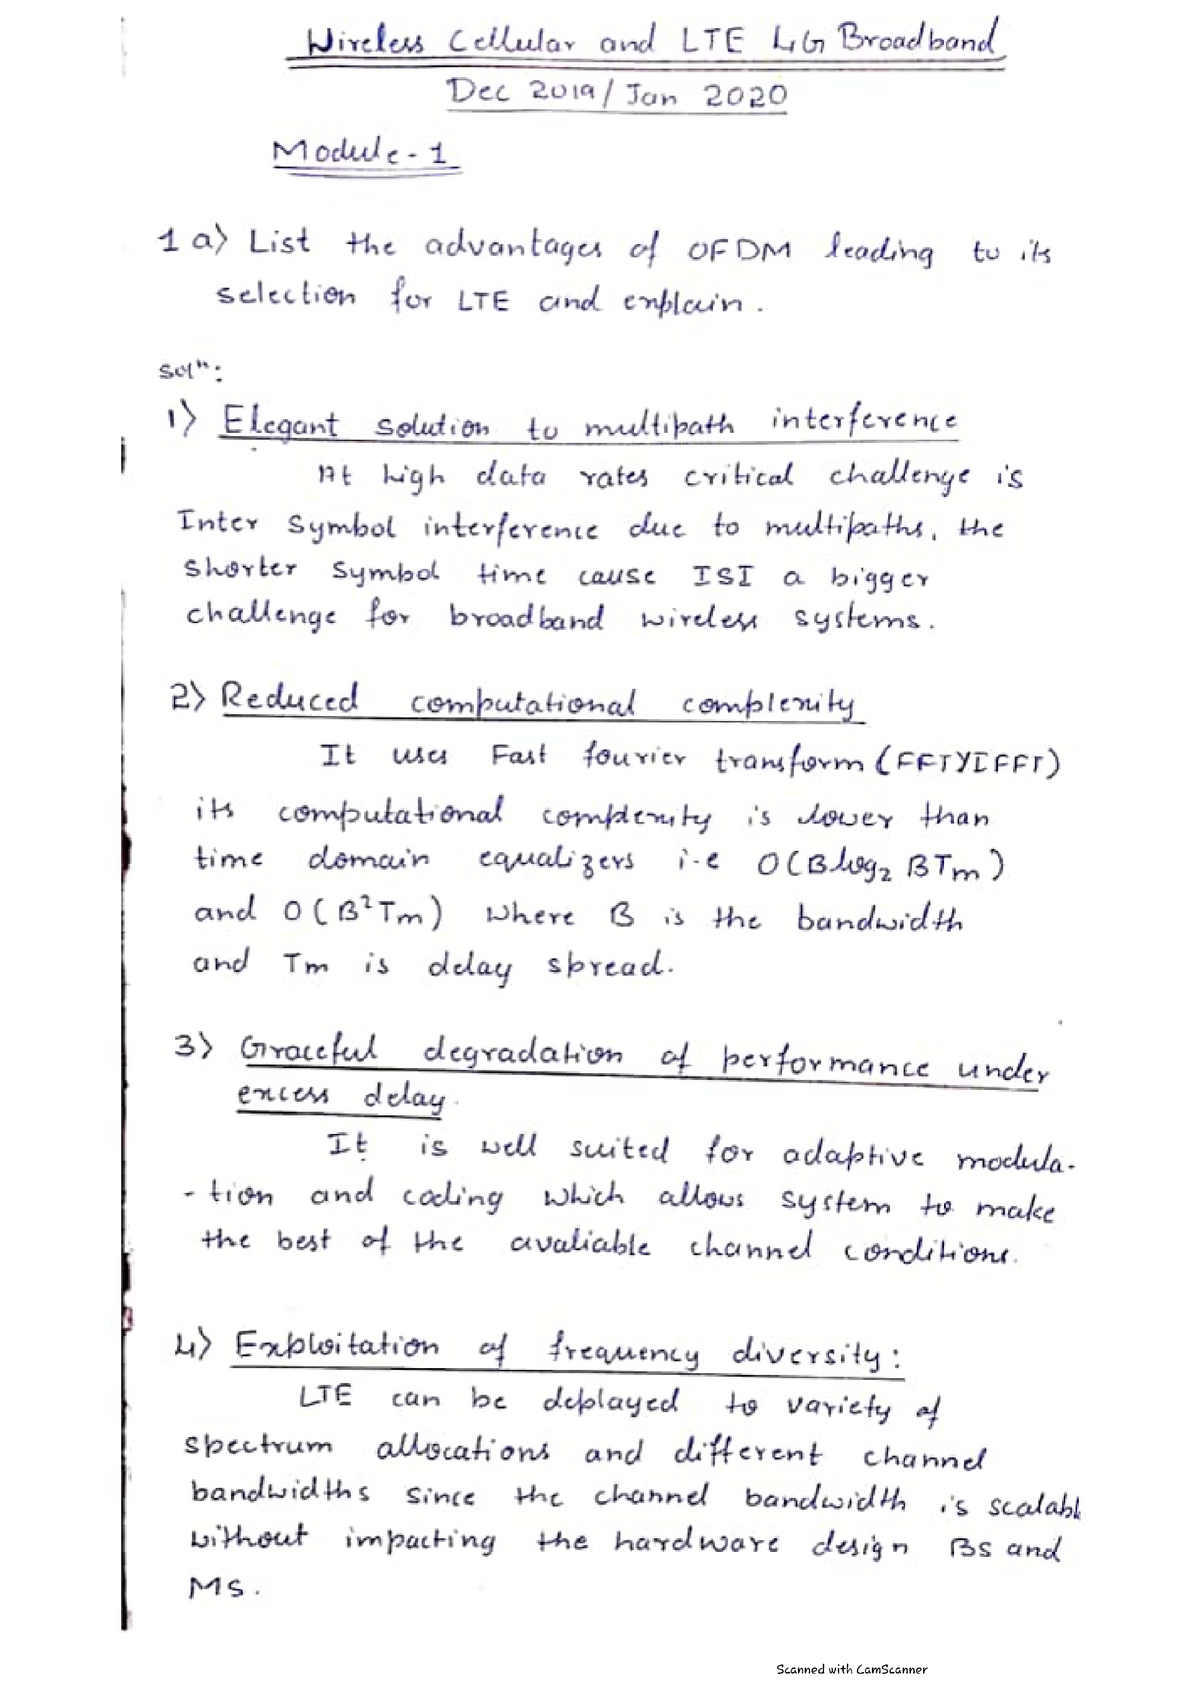 Wireless Cellular and LTE 4G Broadband
Dec 2019/Jan 2020
Module-1
1 a) List the advantages of OFDM leading to its
selection for LTE and explain.
Solⁿ:
1) Elegant solution to multipath interference
At high data rates critical challenge is
Inter Symbol interference due to multipaths, the
shorter symbol time cause ISI a bigger
challenge for broadband wireless systems.
2) Reduced computational complexity
It uses Fast fourier transform (FFT/IFFT)
its computational complexity is lower than
time domain equalizers i.e O(B log₂ BTm)
and O(B²Tm) where B is the bandwidth
and Tm is delay spread.
3) Graceful degradation of performance under
excess delay.
It is well suited for adaptive modula-
-tion and coding which allows system to make
the best of the avaliable channel conditions.
4) Exploitation of frequency diversity:
LTE can be deployed to variety of
spectrum allocations and different channel
bandwidths since the channel bandwidth is scalabl
without impacting the hardware design BS and
MS.
Scanned with CamScanner